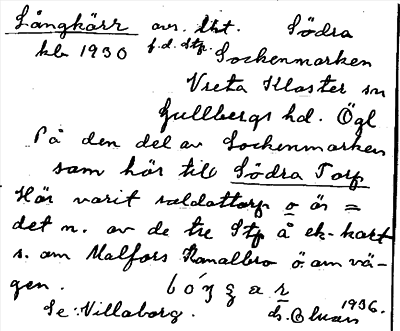 Långkärr avs. lht. Södra
kb 1930 f.d. stp. Sockenmarken
Vreta Kloster sn
Gullbergs hd. Ögl
På den del av Sockenmarken
som hör till Södra Torp
Här varit soldattorp o är =
det n. av de tre Stp å ek-kart
s. om Malfors Kanalbro ö. om vä-
gen.
Se: Villaborg. 1936.